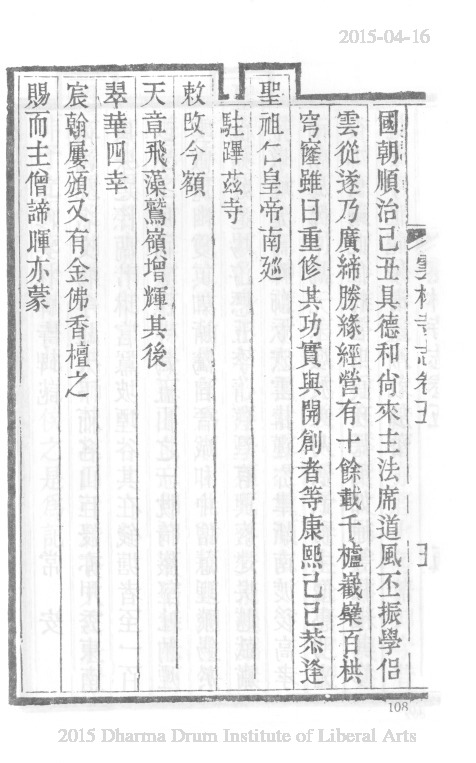 2015-04-16
雲林寺志卷五
五
國朝順治己丑具德和尙來主法席道風丕振學侣
雲從遂乃廣締勝緣經營有十餘載千櫨巀櫱百栱
穹窿雖曰重修其功實與開創者等康熙己巳恭逢
聖祖仁皇帝南廵
駐蹕茲寺
敕改今額
天章飛藻鷲嶺增輝其後
翠華四幸
宸翰屢頒又有金佛香檀之
賜而主僧諦暉亦蒙
108
2015 Dharma Drum Institute of Liberal Arts